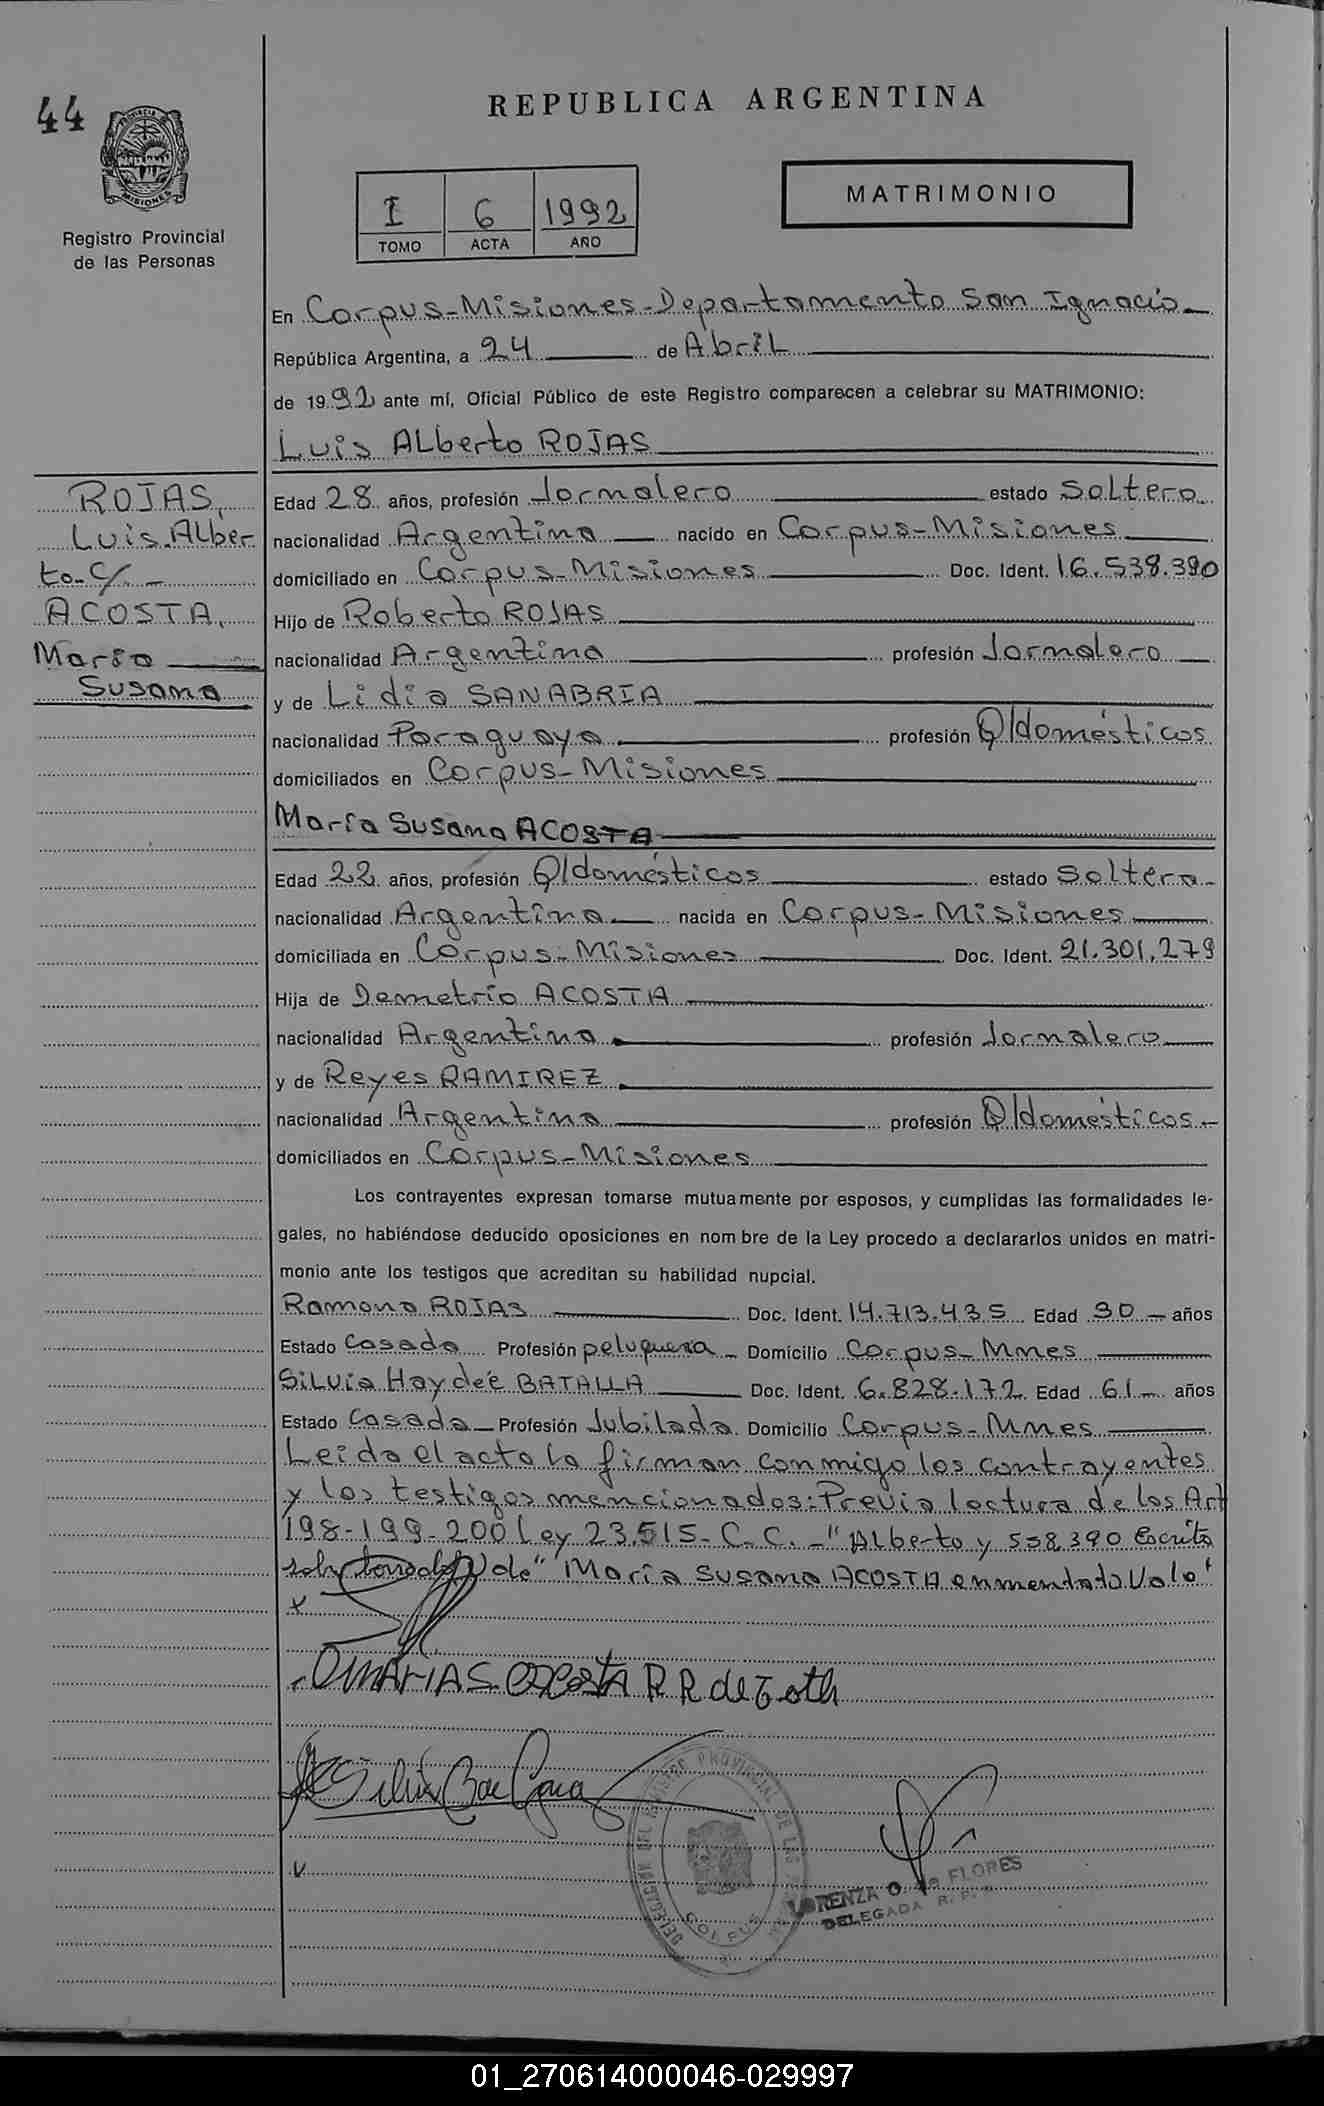 44
REPUBLICA ARGENTINA
PROVINCIA DE
MISIONES
Registro Provincial
de las Personas
I 6 1992
TOMO ACTA AÑO
MATRIMONIO
En Corpus-Misiones-Departamento San Ignacio
República Argentina, a 24 de Abril
de 1992 ante mí, Oficial Público de este Registro comparecen a celebrar su MATRIMONIO:
Luis Alberto ROJAS
ROJAS,
Luis Alber
to- c/. -
ACOSTA,
María
Susana
Edad 28 años, profesión Jornalero estado Soltero
nacionalidad Argentina nacido en Corpus-Misiones
domiciliado en Corpus-Misiones Doc. Ident. 16.538.390
Hijo de Roberto ROJAS
nacionalidad Argentina profesión Jornalero
y de Lidia SANABRIA
nacionalidad Paraguaya profesión Q/domésticos
domiciliados en Corpus-Misiones
María Susana ACOSTA
Edad 22 años, profesión Q/domésticos estado Soltera
nacionalidad Argentina nacida en Corpus-Misiones
domiciliada en Corpus-Misiones Doc. Ident. 21.301.279
Hija de Demetrio ACOSTA
nacionalidad Argentina profesión Jornalero
y de Reyes RAMIREZ
nacionalidad Argentina profesión Q/domésticos
domiciliados en Corpus-Misiones
Los contrayentes expresan tomarse mutuamente por esposos, y cumplidas las formalidades le-
gales, no habiéndose deducido oposiciones en nombre de la Ley procedo a declararlos unidos en matri-
monio ante los testigos que acreditan su habilidad nupcial.
Ramona ROJAS Doc. Ident. 14.713.435 Edad 30 años
Estado Casada Profesión peluquera Domicilio Corpus-Mnes
Silvia Haydeé BATALLA Doc. Ident. 6.828.172 Edad 61 años
Estado Casada Profesión Jubilada Domicilio Corpus-Mnes
Leida el acta la firman conmigo los contrayentes
y los testigos mencionados: Previa lectura de los Art
198-199-200 Ley 23.515- C.C. -"Alberto y 538.390 Escrito
sobre de" María Susana ACOSTA enmentado Vale"
MARIA S acosta R R de Toth
Silvia
DELEGACION DEL REGISTRO PROVINCIAL DE LAS
CORPUS
LORENZA O. de FLORES
DELEGADA R. P. P.
01_270614000046-029997